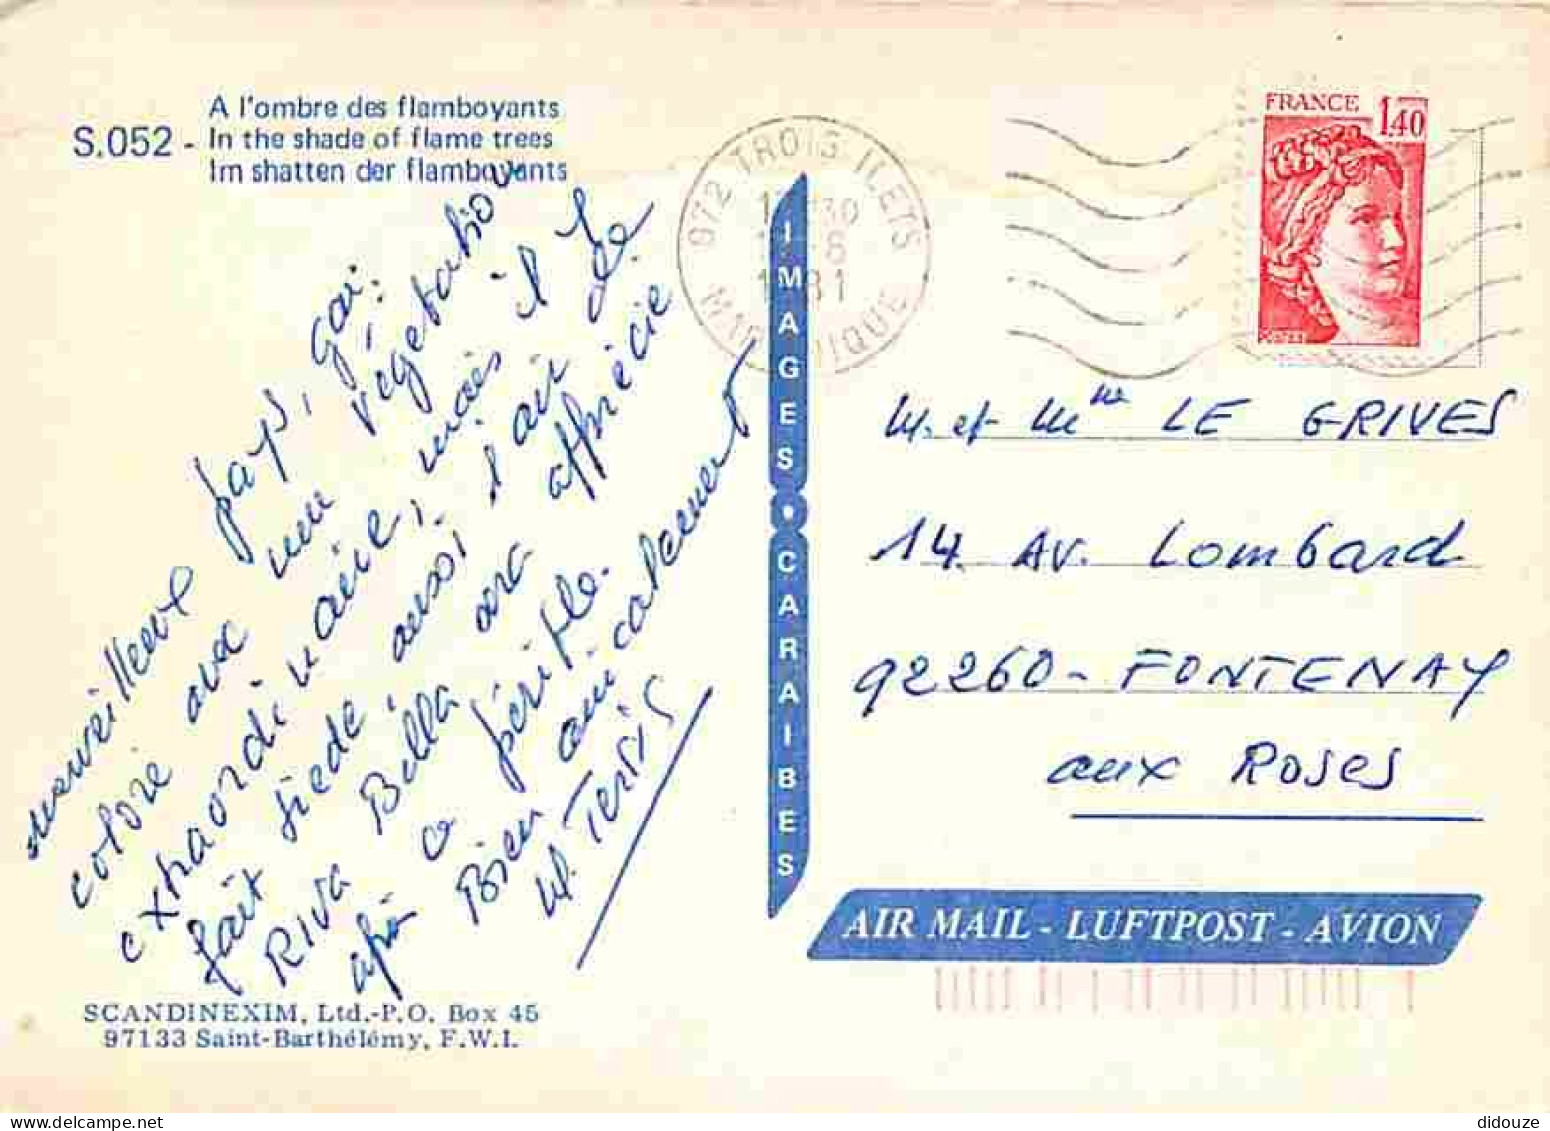 A l'ombre des flamboyants
S.052 - In the shade of flame trees
Im shatten der flamboyants
972 TROIS ILETS
MARTINIQUE
FRANCE 1,40
merveilleux pays, gai,
coloré avec une végétation
extraordinaire, mais il y
fait tiède, aussi l'air de
RIVA Bella sera apprécié
après ce périple.
Bien amicalement
M. Terris
IMAGES • CARAIBES
M. et Mme LE GRIVES
14. AV. Lombard
92260 - FONTENAY
aux Roses
AIR MAIL - LUFTPOST - AVION
SCANDINEXIM, Ltd.-P.O. Box 45
97133 Saint-Barthélémy, F.W.I.
didouze